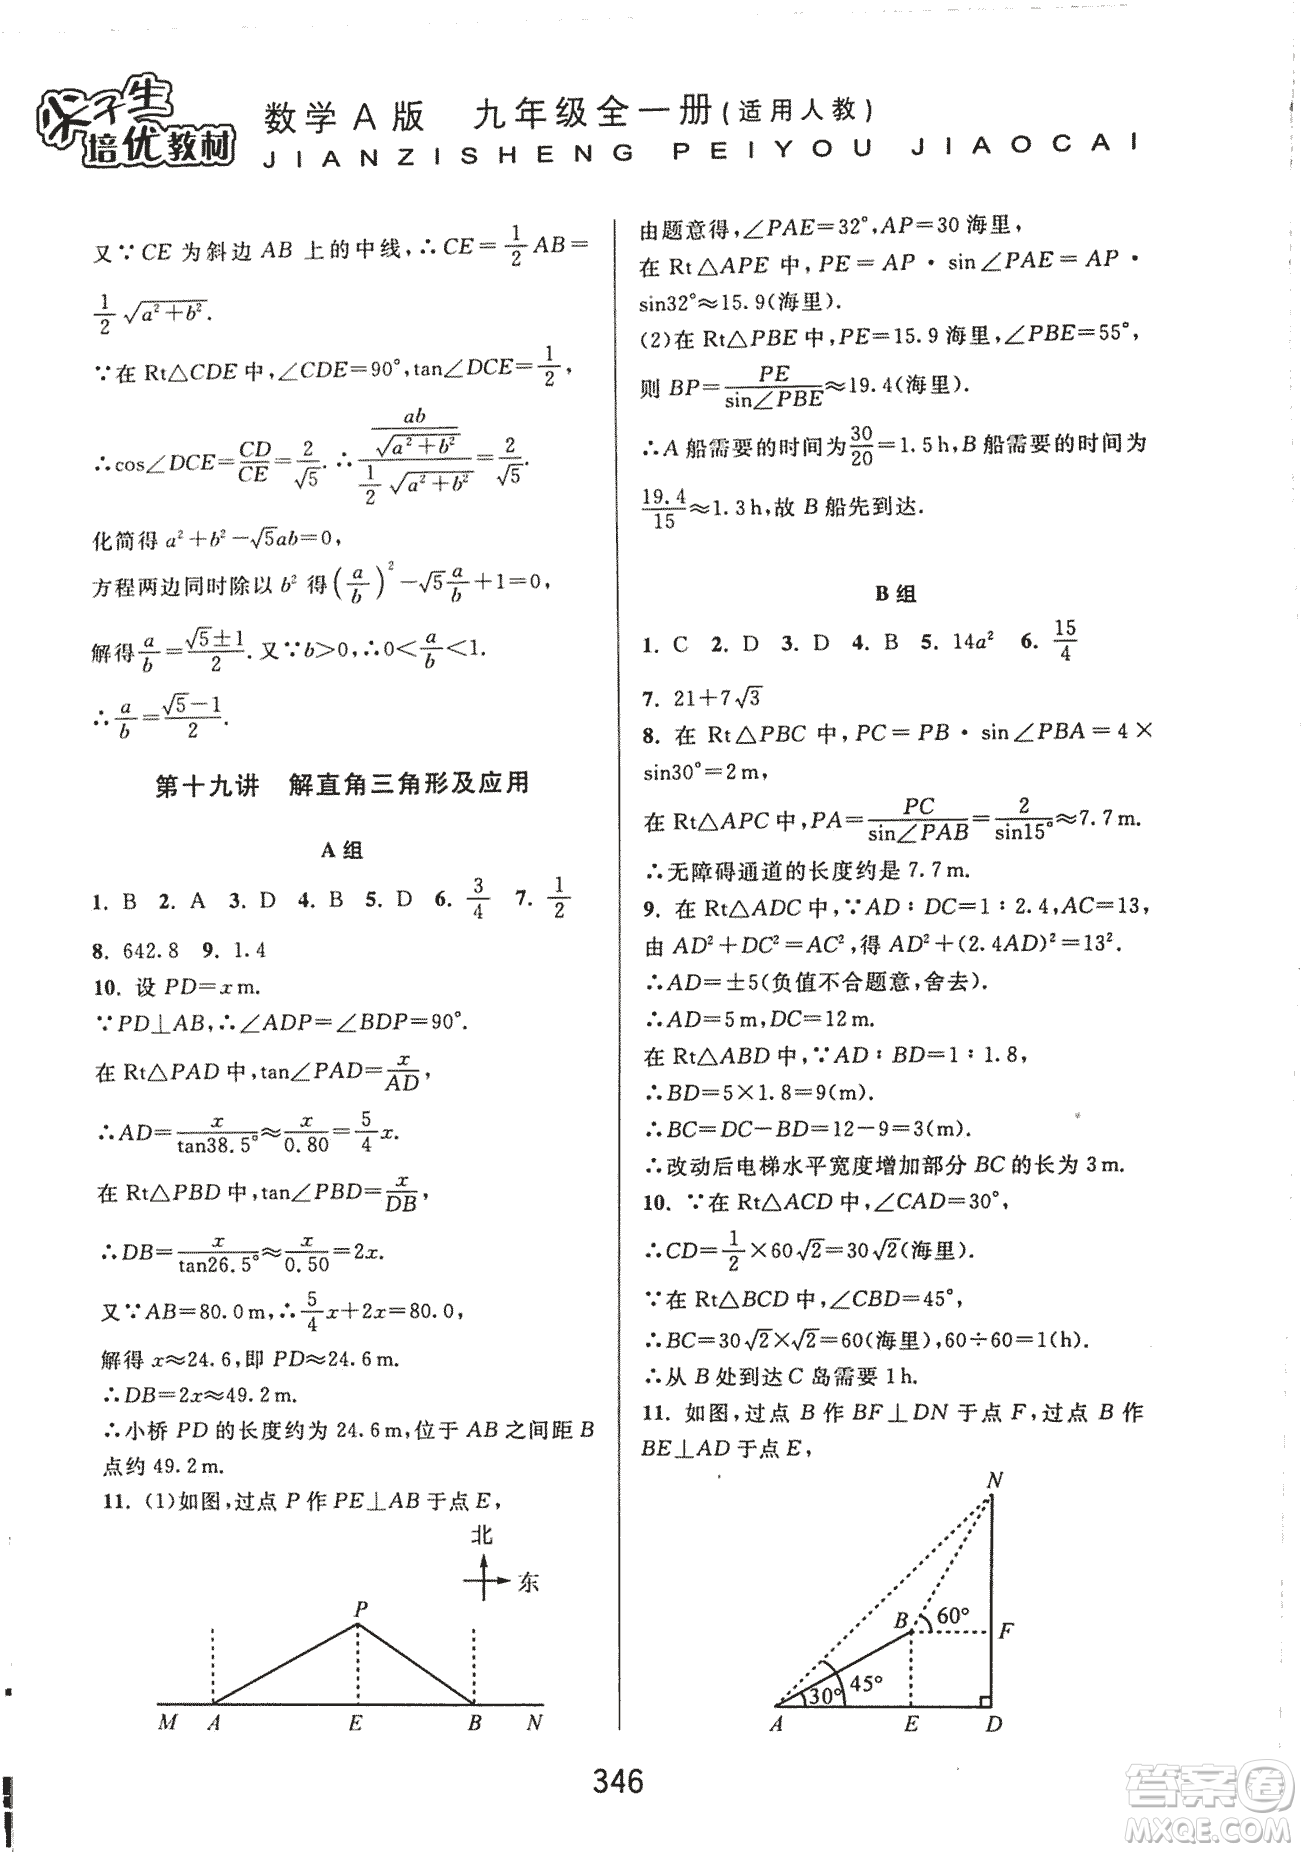 尖子生
培优教材
数学A版 九年级全一册(适用人教)
JIANZISHENG PEIYOU JIAOCAI
又∵CE 为斜边 AB 上的中线,∴CE=1/2 AB=
1/2 √(a²+b²).
∵在 Rt△CDE 中,∠CDE=90°,tan∠DCE=1/2,
∴cos∠DCE=CD/CE=2/√5.∴(ab/√(a²+b²))/(1/2 √(a²+b²))=2/√5.
化简得 a²+b²-√5ab=0,
方程两边同时除以 b² 得(a/b)²-√5 a/b+1=0,
解得 a/b=(√5±1)/2.又∵b>0,∴0<a/b<1.
∴a/b=(√5-1)/2.
第十九讲 解直角三角形及应用
A 组
1. B 2. A 3. D 4. B 5. D 6. 3/4 7. 1/2
8. 642.8 9. 1.4
10. 设 PD=x m.
∵PD⊥AB,∴∠ADP=∠BDP=90°.
在 Rt△PAD 中,tan∠PAD=x/AD,
∴AD=x/tan38.5°≈x/0.80=5/4 x.
在 Rt△PBD 中,tan∠PBD=x/DB,
∴DB=x/tan26.5°≈x/0.50=2x.
又∵AB=80.0 m,∴5/4 x+2x=80.0,
解得 x≈24.6,即 PD≈24.6 m.
∴DB=2x≈49.2 m.
∴小桥 PD 的长度约为 24.6 m,位于 AB 之间距 B
点约 49.2 m.
11. (1)如图,过点 P 作 PE⊥AB 于点 E,
北
东
P
M A E B N
由题意得,∠PAE=32°,AP=30 海里,
在 Rt△APE 中,PE=AP·sin∠PAE=AP·
sin32°≈15.9(海里).
(2)在 Rt△PBE 中,PE=15.9 海里,∠PBE=55°,
则 BP=PE/sin∠PBE≈19.4(海里).
∴A 船需要的时间为30/20=1.5 h,B 船需要的时间为
19.4/15≈1.3 h,故 B 船先到达.
B 组
1. C 2. D 3. D 4. B 5. 14a² 6. 15/4
7. 21+7√3
8. 在 Rt△PBC 中,PC=PB·sin∠PBA=4×
sin30°=2 m,
在 Rt△APC 中,PA=PC/sin∠PAB=2/sin15°≈7.7 m.
∴无障碍通道的长度约是 7.7 m.
9. 在 Rt△ADC 中,∵AD∶DC=1∶2.4,AC=13,
由 AD²+DC²=AC²,得 AD²+(2.4AD)²=13².
∴AD=±5(负值不合题意,舍去).
∴AD=5 m,DC=12 m.
在 Rt△ABD 中,∵AD∶BD=1∶1.8,
∴BD=5×1.8=9(m).
∴BC=DC-BD=12-9=3(m).
∴改动后电梯水平宽度增加部分 BC 的长为 3 m.
10. ∵在 Rt△ACD 中,∠CAD=30°,
∴CD=1/2×60√2=30√2(海里).
∵在 Rt△BCD 中,∠CBD=45°,
∴BC=30√2×√2=60(海里),60÷60=1(h).
∴从 B 处到达 C 岛需要 1 h.
11. 如图,过点 B 作 BF⊥DN 于点 F,过点 B 作
BE⊥AD 于点 E,
N
B 60° F
45°
30°
A E D
346
答案卷
MXQE.COM